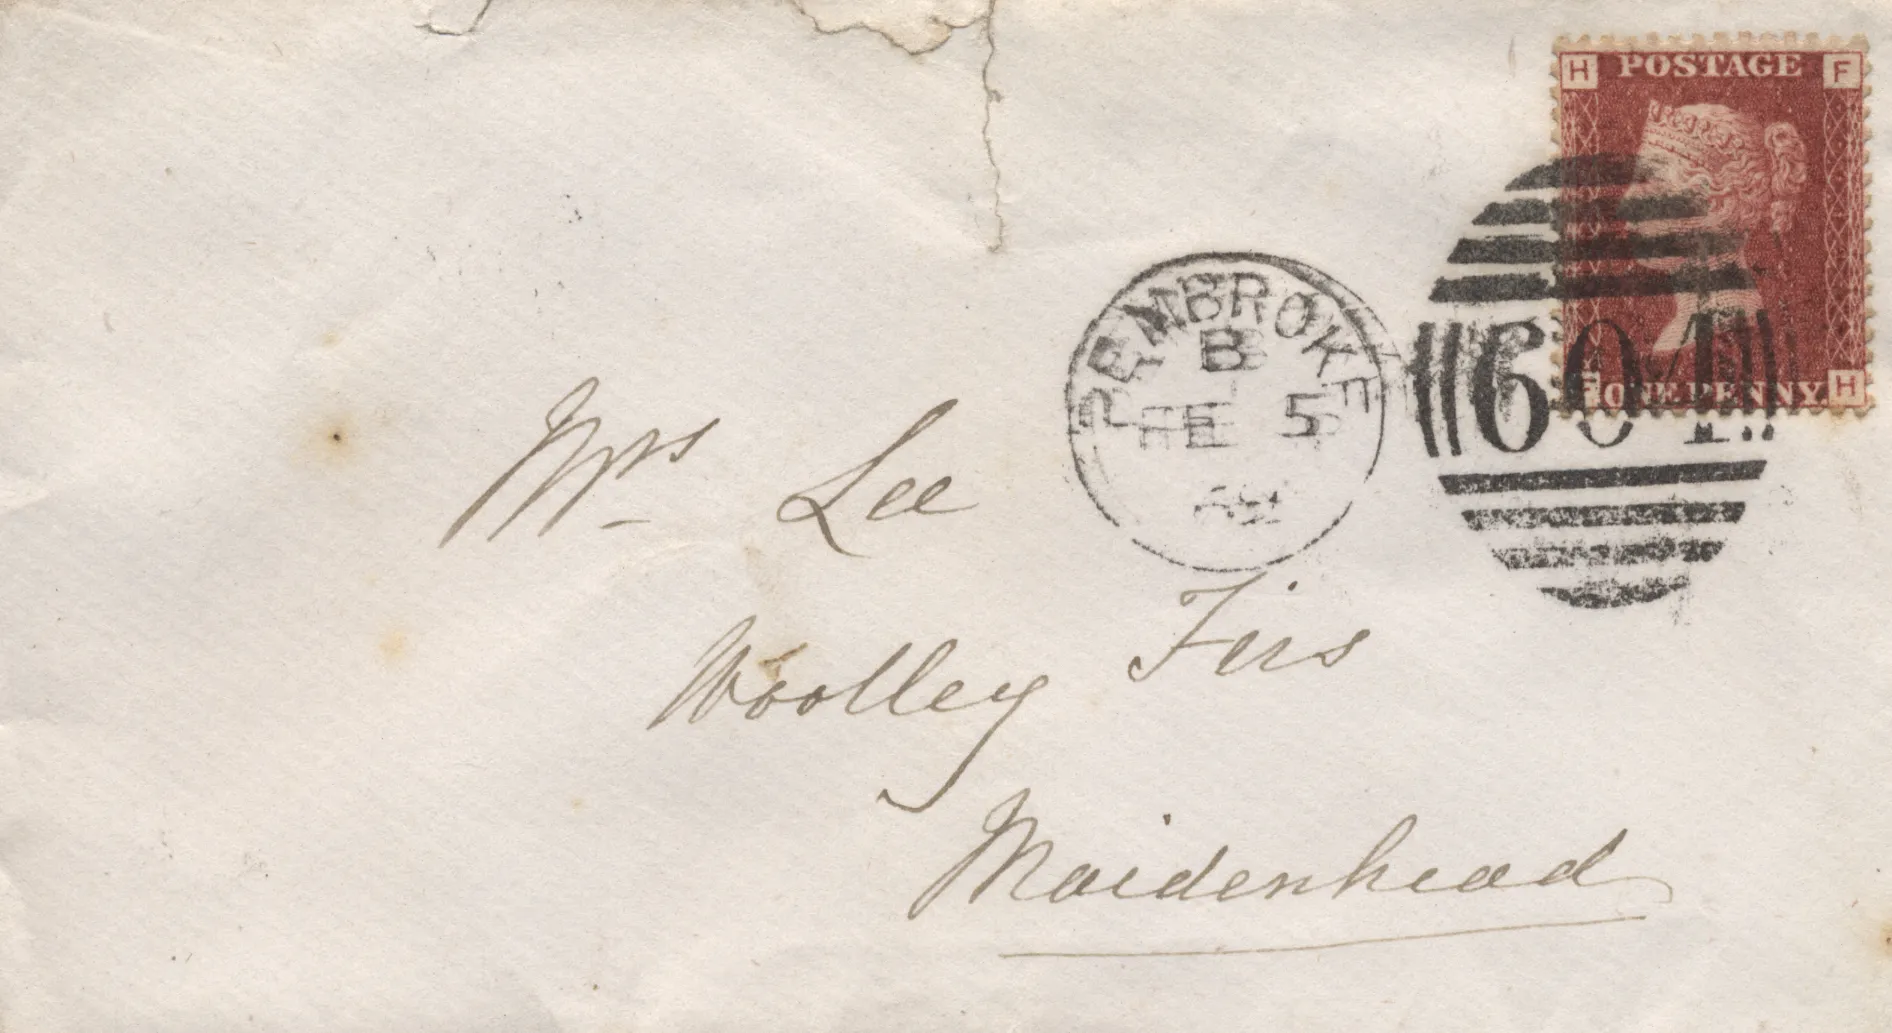 H POSTAGE F
PEMBROKE
B
FE 5
604
F ONE PENNY. H
Mrs Lee
Woolley Firs
Maidenhead